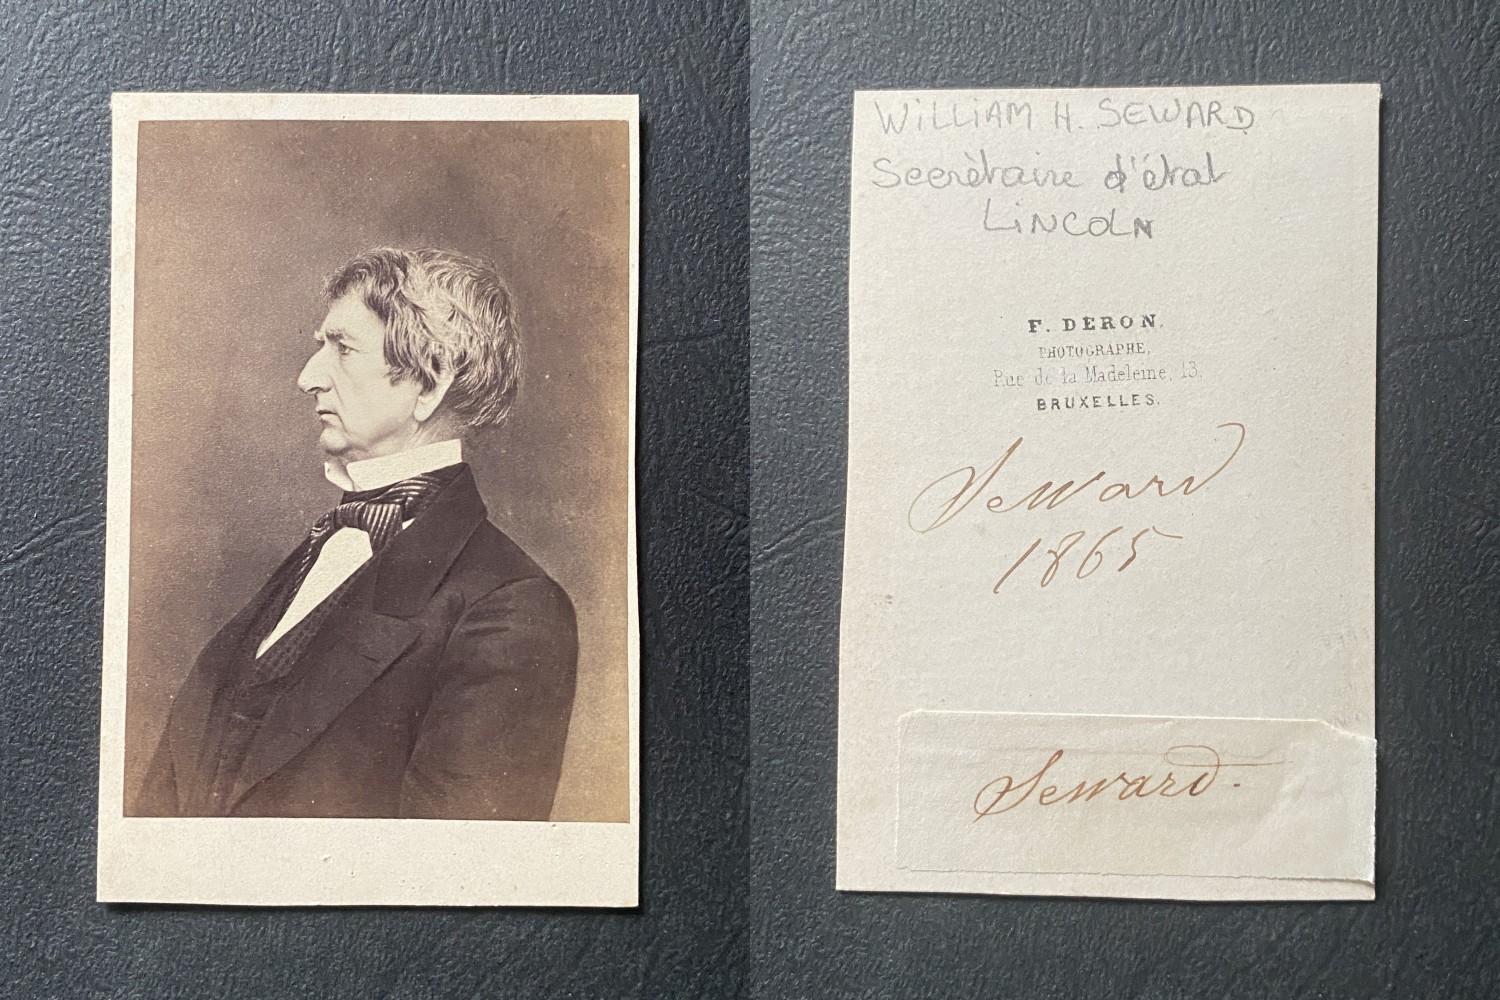 WiLLiAM H. SEWARD
Secrètaire d'état
LiNCOLN
F. DERON.
PHOTOGRAPHE,
Rue de la Madeleine, 13,
BRUXELLES.
Seward
1865
Seward.